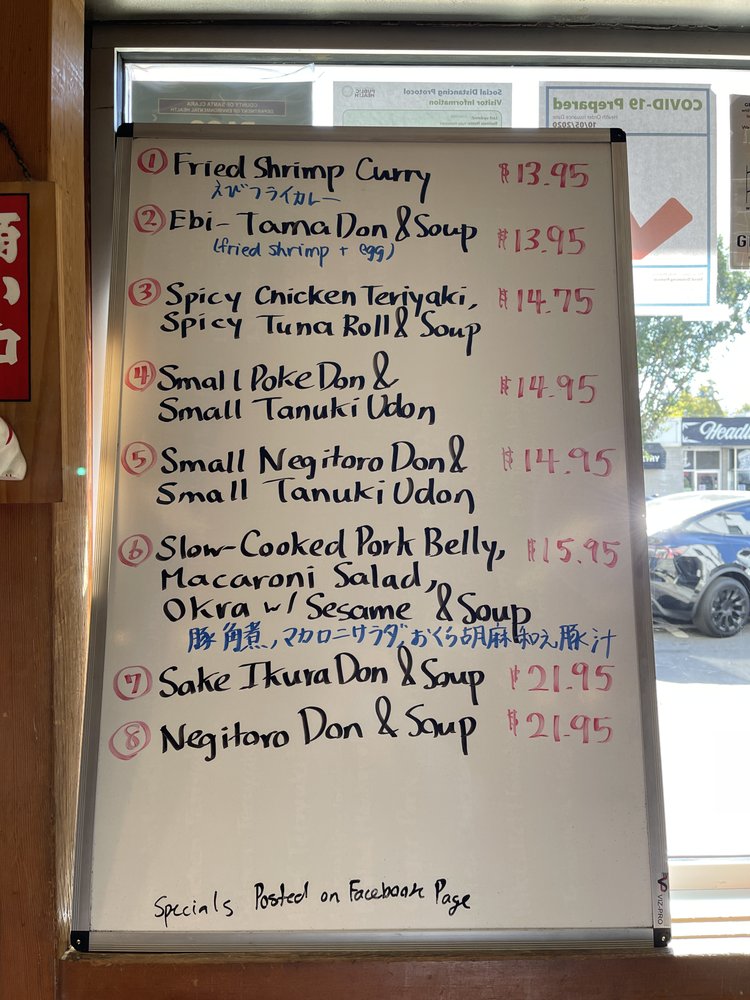 COUNTY OF SANTA CLARA
DEPARTMENT OF ENVIRONMENTAL HEALTH
PUBLIC HEALTH
Social Distancing Protocol
Visitor Information
COVID-19 Prepared
10/05/2020
① Fried Shrimp Curry $13.95
えびフライカレー
② Ebi-Tama Don & Soup $13.95
(fried shrimp + egg)
③ Spicy Chicken Teriyaki, $14.75
Spicy Tuna Roll & Soup
④ Small Poke Don & $14.95
Small Tanuki Udon
⑤ Small Negitoro Don & $14.95
Small Tanuki Udon
⑥ Slow-Cooked Pork Belly, $15.95
Macaroni Salad,
Okra w/ Sesame & Soup
豚角煮,マカロニサラダ,おくら胡麻和え,豚汁
⑦ Sake Ikura Don & Soup $21.95
⑧ Negitoro Don & Soup $21.95
Specials Posted on Facebook Page
VIZ-PRO